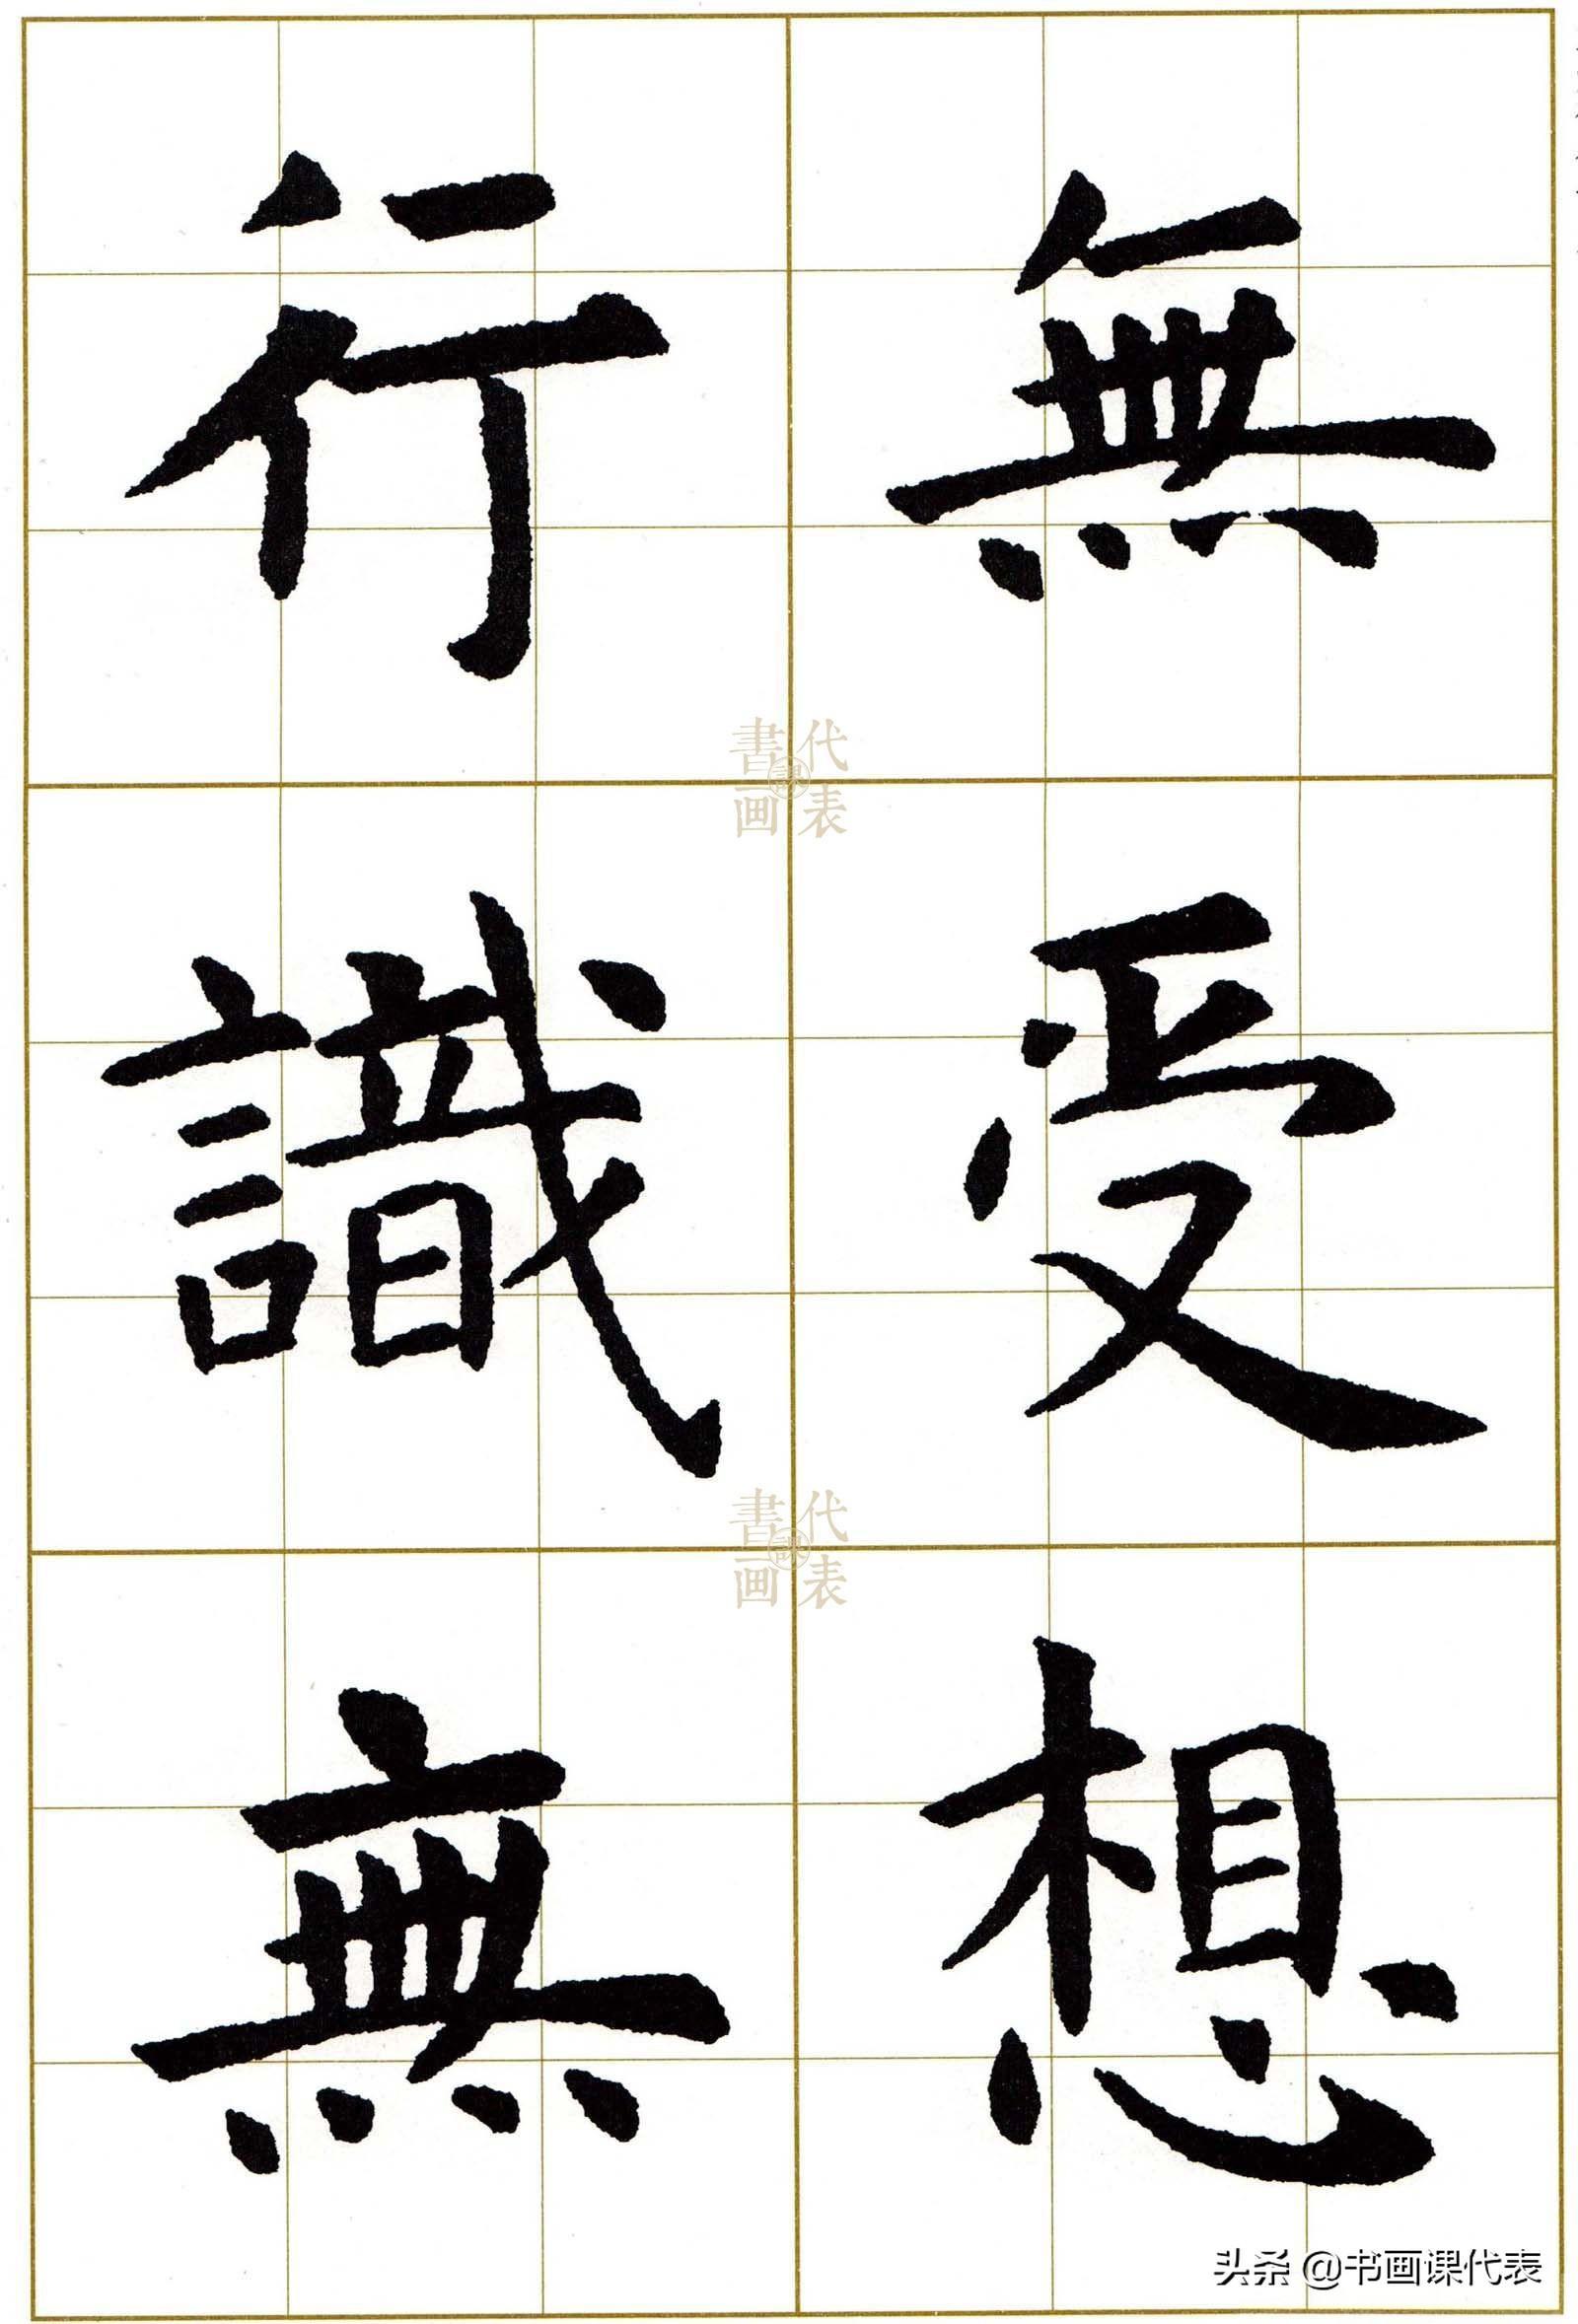 無受想
行識無
書画
課
代表
書画
課
代表
头条 @书画课代表